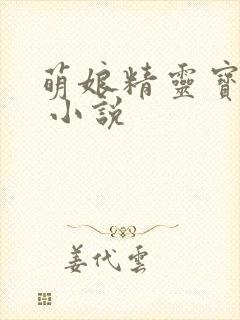 萌娘精靈寶
小說
姜代雲